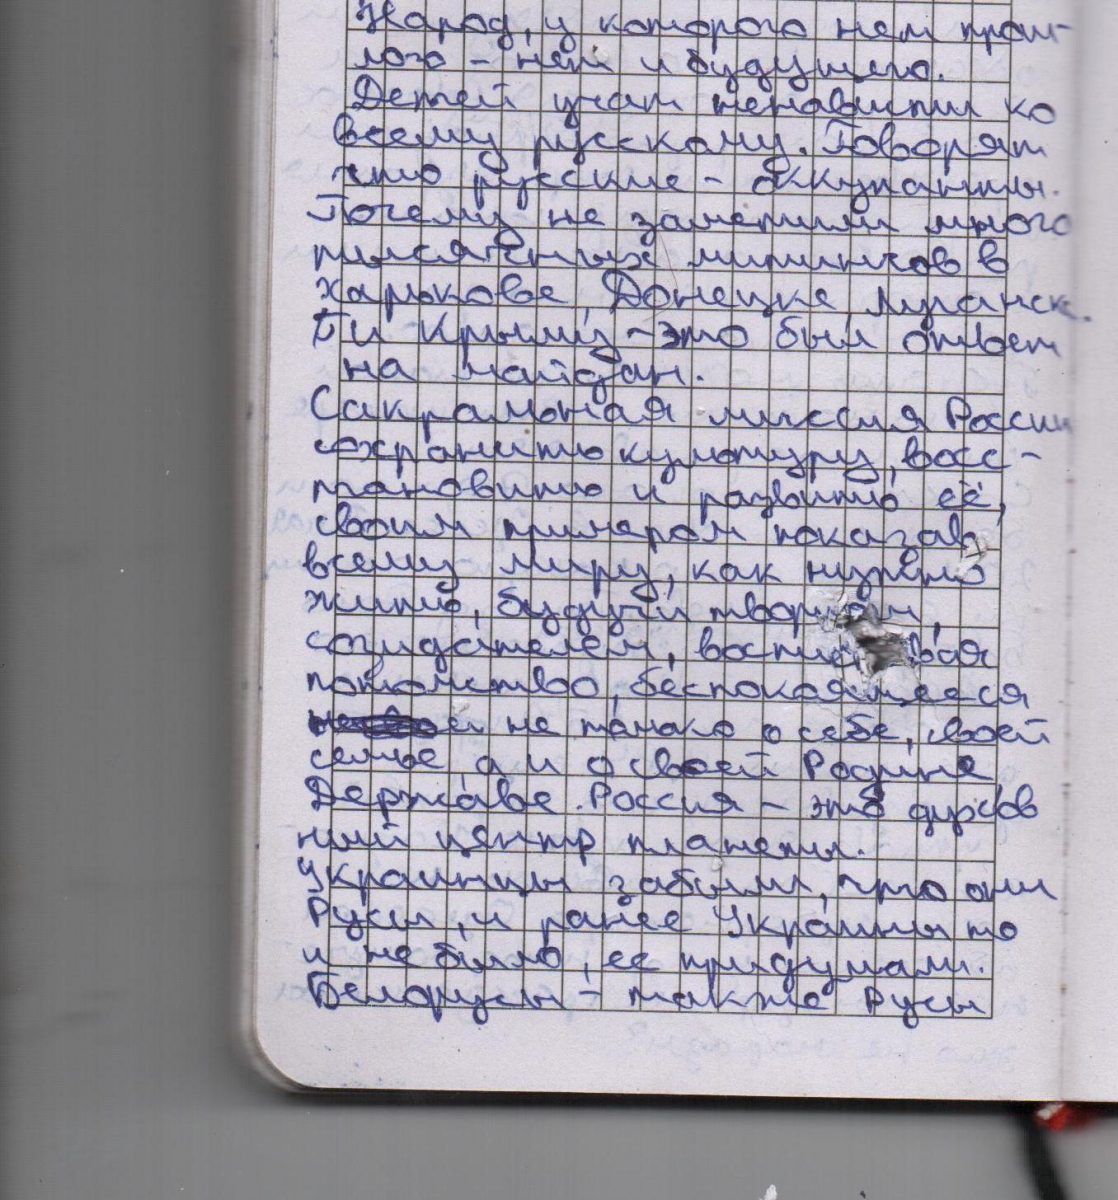 Народ, у которого нет прош-
лого - нет и будущего.
Детей учат ненависти ко
всему русскому. Говорят
что русские - оккупанты.
Почему не заметили много
тысячных митингов в
Харькове, Донецке, Луганск.
и Крыму - это был ответ
на майдан.
Сакральная миссия России
сохранить культуру, восс-
тановить и развить её,
своим примером показав
всему миру, как нужно
жить, будучи творцом,
созидателем,
потомство, беспокоящееся
не только о себе, своей
семье, а и о своей Родине
Державе. Россия - это духов
ный центр планеты.
Украинцы забыли, что они
Русы, и ранее Украины то
и не было, ее придумали.
Белорусы - также Русы